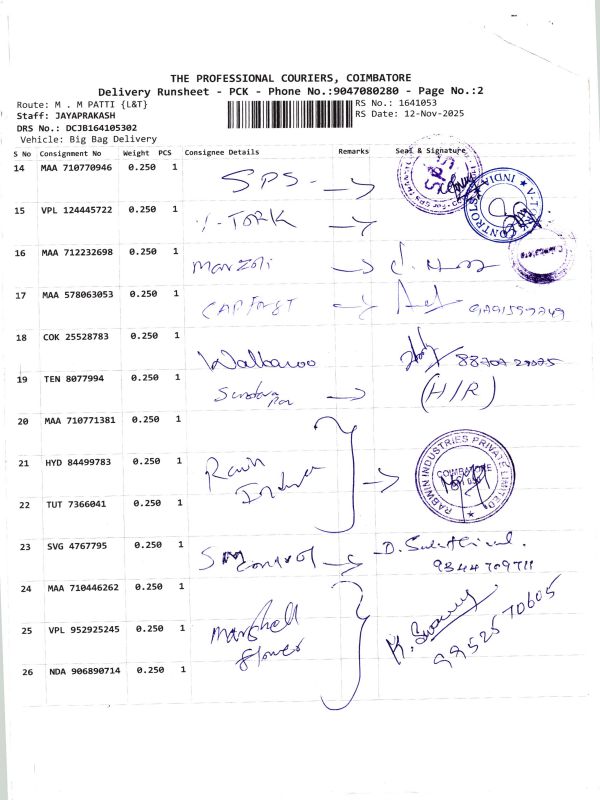 THE PROFESSIONAL COURIERS, COIMBATORE
Delivery Runsheet - PCK - Phone No.:9047080280 - Page No.:2
Route: M . M PATTI {L&T}
RS No.: 1641053
Staff: JAYAPRAKASH
RS Date: 12-Nov-2025
DRS No.: DCJB164105302
Vehicle: Big Bag Delivery
S No Consignment No Weight PCS Consignee Details Remarks Seal & Signature
14 MAA 710770946 0.250 1 SPS
15 VPL 124445722 0.250 1 V-TORK
16 MAA 712232698 0.250 1 Marzoli
17 MAA 578063053 0.250 1
18 COK 25528783 0.250 1 Walkaroo
19 TEN 8077994 0.250 1 (H/R)
20 MAA 710771381 0.250 1
21 HYD 84499783 0.250 1
RABWIN INDUSTRIES PRIVATE LIMITED
COIMBATORE
22 TUT 7366041 0.250 1
23 SVG 4767795 0.250 1
9344709711
24 MAA 710446262 0.250 1
25 VPL 952925245 0.250 1 Marshell
99525 70605
26 NDA 906890714 0.250 1